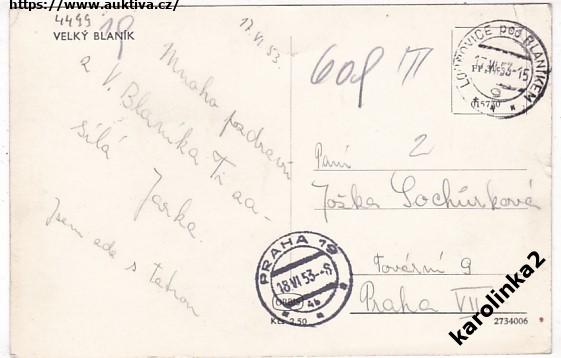 https://www.auktiva.cz/
4499
VELKÝ BLANÍK
19
17.VI 53.
Mnoho pozdravů
z V. Blaníka Ti za-
sílá Jarka.
Jsem zde s tátou
608 III
LOUŇOVICE pod BLANÍKEM
17.VI.53-15
9
015700
Paní
Joška Sochůrková
Tovární 9
Praha VII
PRAHA 19
18.VI 53--8
4b
ORBIS
Kčs 2,50
2734006
karolinka2